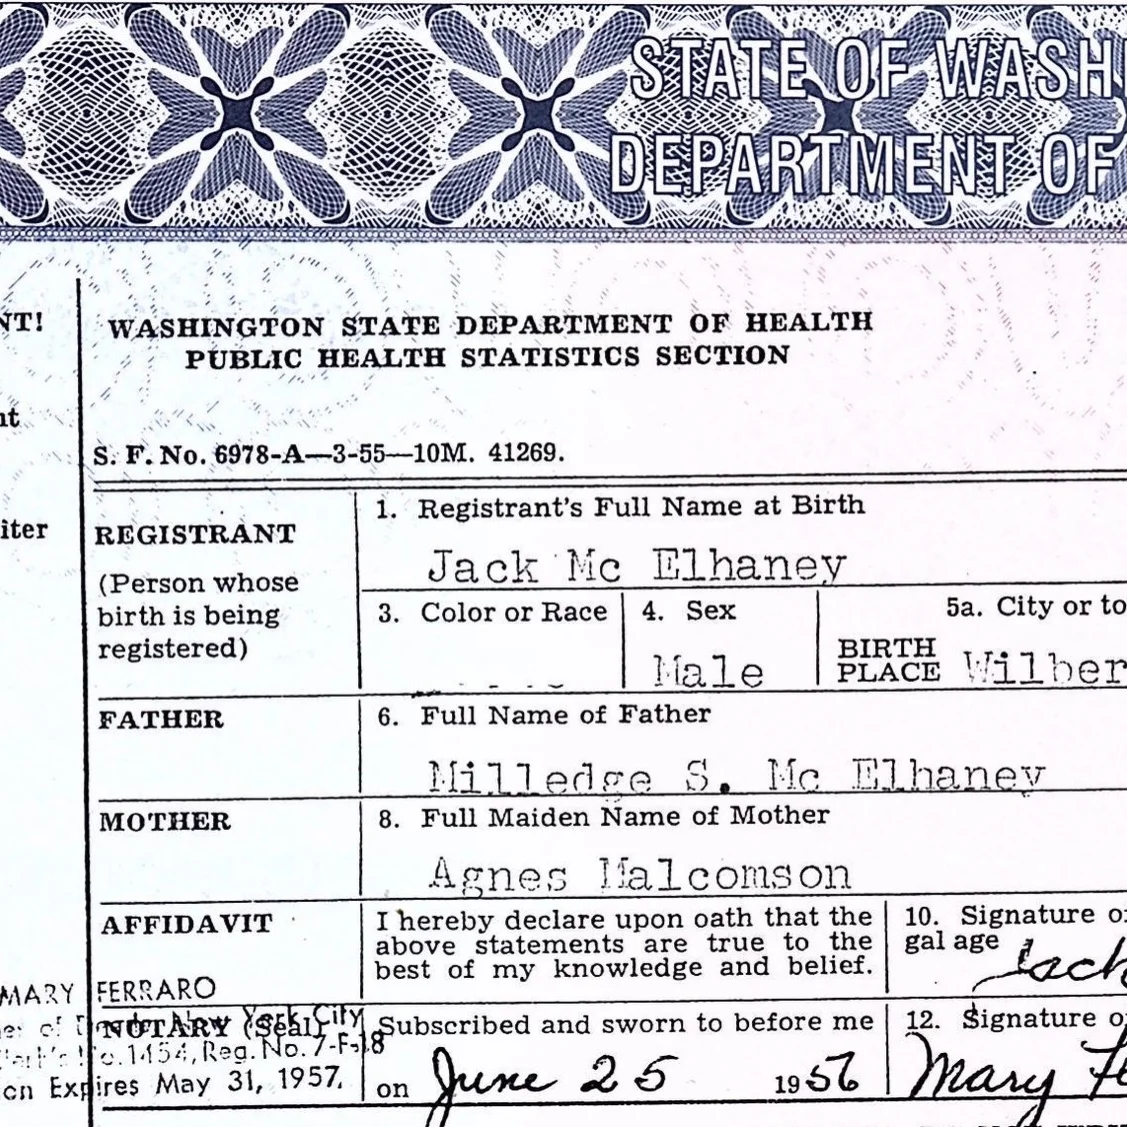 STATE OF WASHI
DEPARTMENT OF
NT!
WASHINGTON STATE DEPARTMENT OF HEALTH
PUBLIC HEALTH STATISTICS SECTION
nt
S. F. No. 6978-A—3-55—10M. 41269.
iter
REGISTRANT
(Person whose
birth is being
registered)
1. Registrant's Full Name at Birth
Jack Mc Elhaney
3. Color or Race
4. Sex
Male
5a. City or to
BIRTH
PLACE Wilber
FATHER
6. Full Name of Father
Milledge S. Mc Elhaney
MOTHER
8. Full Maiden Name of Mother
Agnes Malcomson
AFFIDAVIT
I hereby declare upon oath that the
above statements are true to the
best of my knowledge and belief.
10. Signature o
gal age
Jack
MARY FERRARO
of New York City
NOTARY (Seal)
No. 1454, Reg. No. 7-F-18
on Expires May 31, 1957.
Subscribed and sworn to before me
on June 25 1956
12. Signature o
Mary Fe